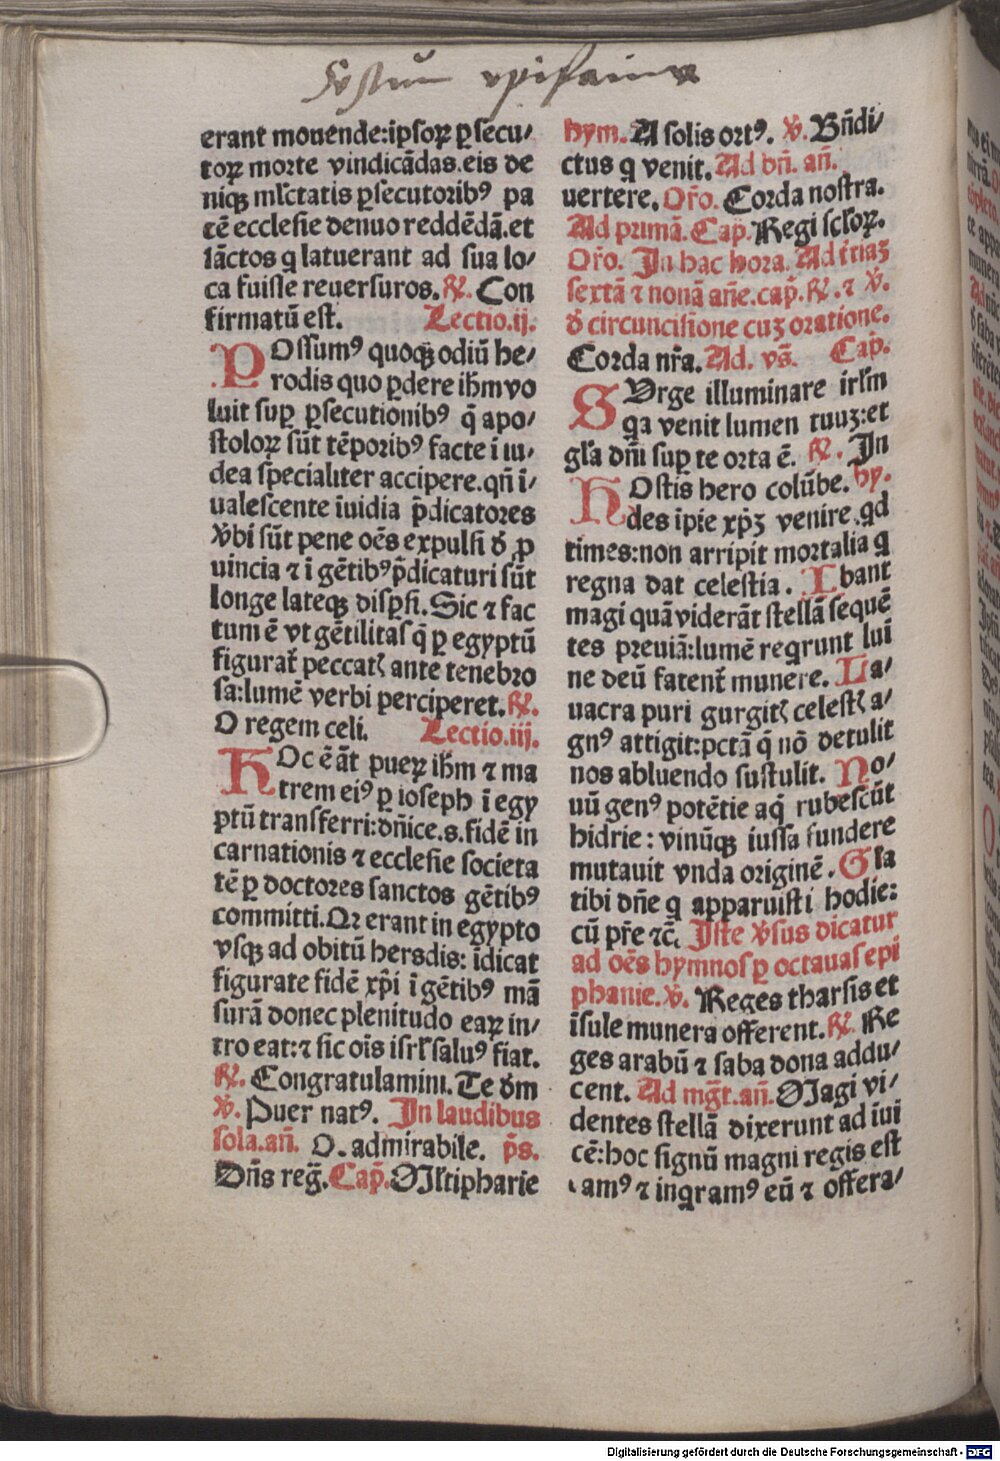 festum epifanie
erant mouende:ipsoꝝ ꝑsecu⸗
toꝝ morte vindicādas.eis de
niqꝫ ml̄ctatis ꝑsecutoribꝰ pa
cē ecclesie denuo reddēdā.et
sāctos q latuerant ad sua lo⸗
ca fuisse reuersuros.℟. Con
firmatū est. Lectio.ij.
POssumꝰ quoqꝫ odiū he⸗
rodis quo ꝑdere ih̄m vo
luit suꝑ ꝑsecutionibꝰ q̄ apo⸗
stoloꝝ sūt tēporibꝰ facte ī iu⸗
dea specialiter accipere.qn̄ ī⸗
ualescente īuidia p̄dicatores
v̄bi sūt pene oēs expulsi đ ꝓ
uincia ⁊ ī gētibꝰ p̄dicaturi sūt
longe lateqꝫ disꝑsi.Sic ⁊ fac
tum ē vt gētilitas q̄ ꝑ egyptū
figurat̄ peccatꝭ ante tenebro
sa:lumē verbi perciperet.℟.
O regem celi. Lectio.iij.
HOc ē āt pueꝝ ih̄m ⁊ ma
trem eiꝰ ꝑ ioseph ī egy
ptū transferri:dn̄ice.s.fidē in
carnationis ⁊ ecclesie societa
tē ꝑ doctores sanctos gētibꝰ
committi.Qꝛ erant in egypto
vsqꝫ ad obitū herodis: īdicat
figurate fidē xp̄i ī gētibꝰ mā
surā donec plenitudo eaꝝ in⸗
tro eat:⁊ sic oīs isrl̄ saluꝰ fiat.
℟. Congratulamini. Te đm
℣. Puer natꝰ. In laudibus
sola.an̄. O. admirabile. p̄s.
Dn̄s reḡ. Cap̄. Ml̄tipharie
hym. A solis ortꝰ. ℣. Bn̄di⸗
ctus q venit. Ad bn̄. an̄.
uertere. Or̄o. Corda nostra.
Ad primā. Cap̄. Regi scl̄oꝝ.
Or̄o. In hac hora. Ad t̄riaꝫ
sextā ⁊ nonā an̄e.cap̄.℟.⁊ ℣.
đ circuncisione cuꝫ oratione.
Corda nr̄a. Ad. vs̄. Cap̄.
SUrge illuminare irl̄m
qa venit lumen tuuꝫ:et
gl̄a dn̄i suꝑ te orta ē. ℟. In
HOstis hero colūbe. hy.
des ipie xp̄ꝫ venire qd
times:non arripit mortalia q
regna dat celestia. Ibant
magi quā viderāt stellā sequē
tes preuiā:lumē reqrunt lui
ne deū fatent̄ munere. La⸗
uacra puri gurgitꝭ celestꝭ a⸗
gnꝰ attigit:pctā q̄ nō detulit
nos abluendo sustulit. No⸗
uū genꝰ potētie aq̄ rubescūt
hidrie: vinūqꝫ iussa fundere
mutauit vnda originē. Gl̄a
tibi dn̄e q apparuisti hodie:
cū pr̄e ⁊c̄. Iste v̄sus dicatur
ad oēs hymnos ꝑ octauas epi
phanie.℣. Reges tharsis et
īsule munera offerent.℟. Re
ges arabū ⁊ saba dona addu⸗
cent. Ad mḡt.an̄. Magi vi⸗
dentes stellā dixerunt ad īui
cē:hoc signū magni regis est
amꝰ ⁊ inqramꝰ eū ⁊ offera⸗
Digitalisierung gefördert durch die Deutsche Forschungsgemeinschaft - DFG